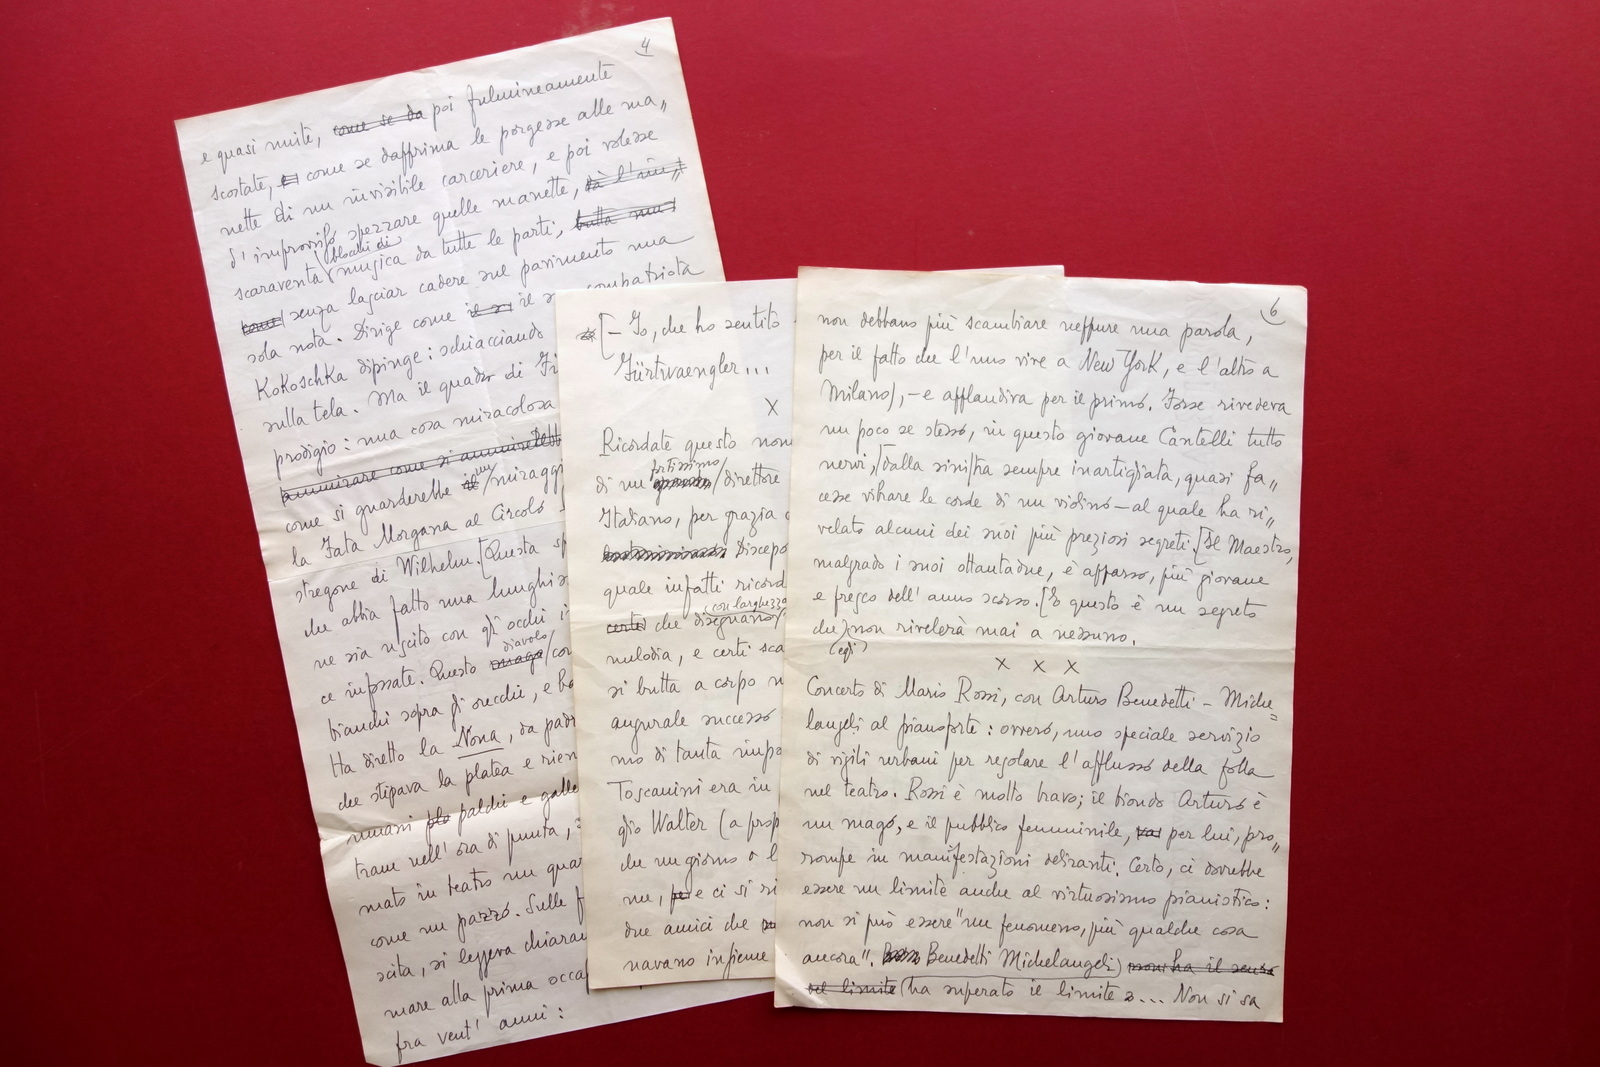 4
e quasi unite, come se da poi fulmineamente
scostate, come se dapprima le porgesse alle ma„
nette di un invisibile carceriere, e poi volesse
d'improvviso spezzare quelle manette,
blocchi di
scaraventa musica da tutte le parti, butta ma
come senza lasciar cadere sul pavimento una
sola nota. Dirige come il suo compatriota
Kokoschka dipinge: schiacciando
sulla tela. Ma il quadro di
prodigio: una cosa miracolosa
ammirare come si ammirerebb
come si guarderebbe il un miragg
la Fata Morgana al Circolo
stregone di Wilhelm. [Questa
che abbia fatto una lunghis
ne sia uscito con gli occhi
diavolo
ce infossate. Questo mago
bianchi sopra gli orecchi, e
Ha diretto la Nona, da padr
che stipava la platea e
umani palchi e galle
tram nell'ora di punta,
mato in teatro un qua
come un pazzo. Sulle
scita, si leggeva chiara
mare alla prima occa
fra vent' anni:
[– Io, che ho sentito
Fürtwaengler...
X
Ricordate questo nom
fortissimo
di un direttore
Italiano, per grazia
Discepo
quale infatti ricord
con larghezza
certe che disegnano
melodia, e certi sca
si butta a corpo
augurale successo
mo di tanta impo
Toscanini era in
gio Walter (a prop
che un giorno o l
nu, e ci si
due amici che
navano insieme
6
non debbano più scambiare neppure una parola,
per il fatto che l'uno vive a New York, e l'altro a
Milano), – e applaudiva per il primo. Forse rivedeva
un poco se stesso, in questo giovane Cantelli tutto
nervi, dalla sinistra sempre inartigliata, quasi fa„
cesse vibrare le corde di un violino – al quale ha ri„
velato alcuni dei suoi più preziosi segreti. [Il Maestro,
malgrado i suoi ottantadue, è apparso, più giovane
e fresco dell' anno scorso. [E questo è un segreto
che non rivelerà mai a nessuno.
(egli)
X X X
Concerto di Mario Rossi, con Arturo Benedetti – Miche=
langeli al pianoforte: ovvero, uno speciale servizio
di vigili urbani per regolare l'afflusso della folla
nel teatro. Rossi è molto bravo; il biondo Arturo è
un mago, e il pubblico femminile, per lui, pro„
rompe in manifestazioni deliranti. Certo, ci dovrebbe
essere un limite anche al virtuosismo pianistico:
non si può essere "un fenomeno, più qualche cosa
ancora". Benedetti Michelangeli) non ha il senso
del limite (ha superato il limite ... Non si sa